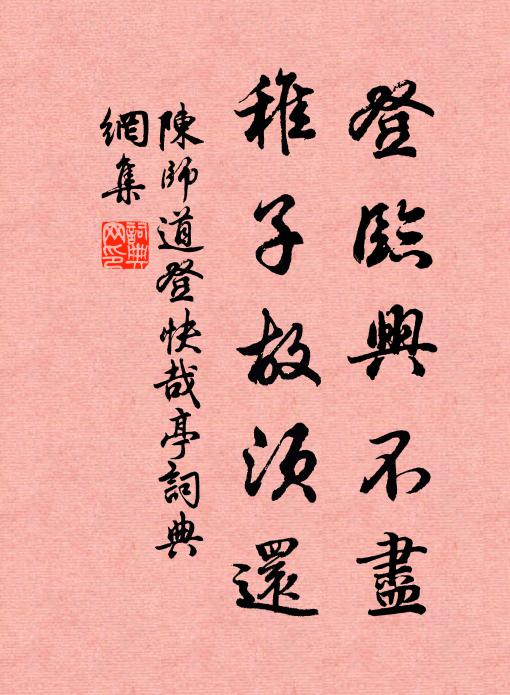 登臨興不盡
稚子故須還
陳師道登快哉亭詞典
網集
詞典
网印